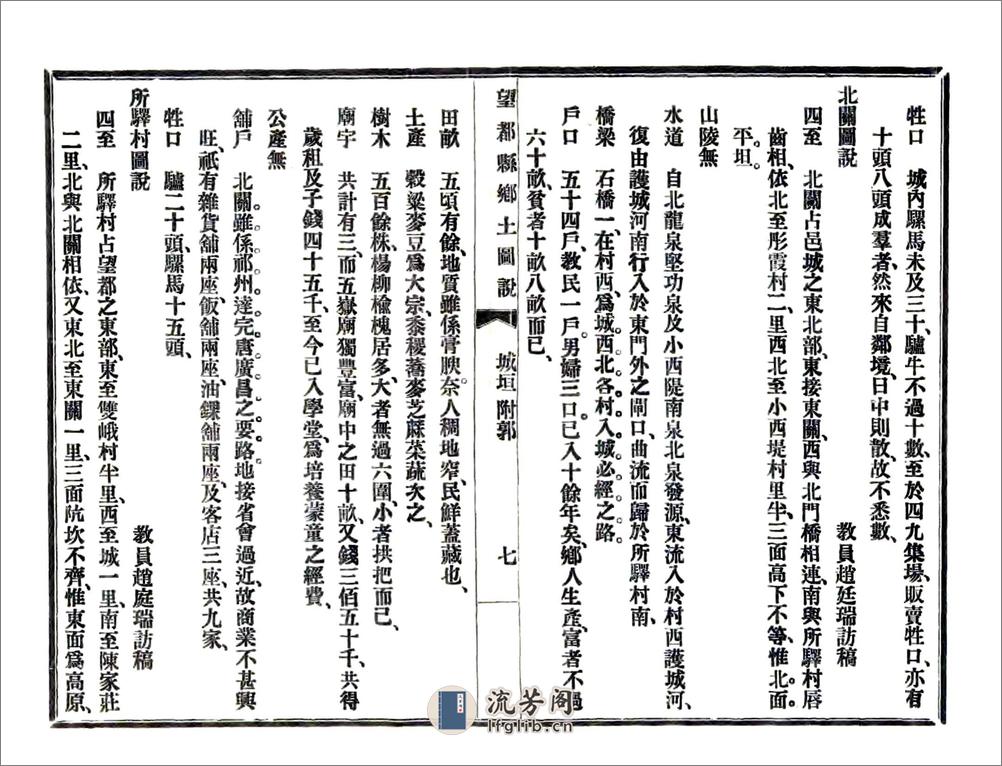 牲口　城內騾馬未及三十、驢牛不過十數、至於四九集場、販賣牲口、亦有
十頭八頭成羣者、然來自鄰境、日中則散、故不悉數、
北關圖說　教員趙廷瑞訪稿
四至　北關占邑城之東北部、東接東關、西與北門橋相連、南與所驛村唇
齒相依、北至彤霞村二里、西北至小西堤村里半、三面高下不等、惟北面
平坦。
山陵無
水道　自北龍泉堅功泉及小西隄南泉北泉發源、東流入於村西護城河、
復由護城河南行入於東門外之閘口、曲流而歸於所驛村南、
橋梁　石橋一、在村西、爲城西北各村入城必經之路。
戶口　五十四戶、教民一戶。男婦三口、已入十餘年矣、鄉人生產、富者不過
六十畝、貧者十畝八畝而已、
望都縣鄉土圖說　城垣附郭　七
田畝　五頃有餘、地質雖係膏腴、奈人稠地窄、民鮮蓋藏也、
土產　穀粱麥豆爲大宗、黍稷蕎麥芝蔴菜蔬次之、
樹木　五百餘株、楊柳榆槐居多、大者無過六圍、小者拱把而已、
廟宇　共計有三、而五嶽廟獨豐富、廟中之田十畝、又錢三佰五十千、共得
歲租及子錢四十五千、至今已入學堂、爲培養蒙童之經費、
公產無
舖戶　北關雖係祁州達完唐廣昌之要路、地接省會過近、故商業不甚興
旺、祇有雜貨舖兩座、飯舖兩座、油餜舖兩座、及客店三座、共九家、
牲口　驢二十頭、騾馬十五頭、
所驛村圖說　教員趙庭瑞訪稿
四至　所驛村占望都之東部、東至雙峨村半里、西至城一里、南至陳家莊
二里、北與北關相依、又東北至東關一里、三面阬坎不齊、惟東面爲高原、
流芳阁
lfglib.cn